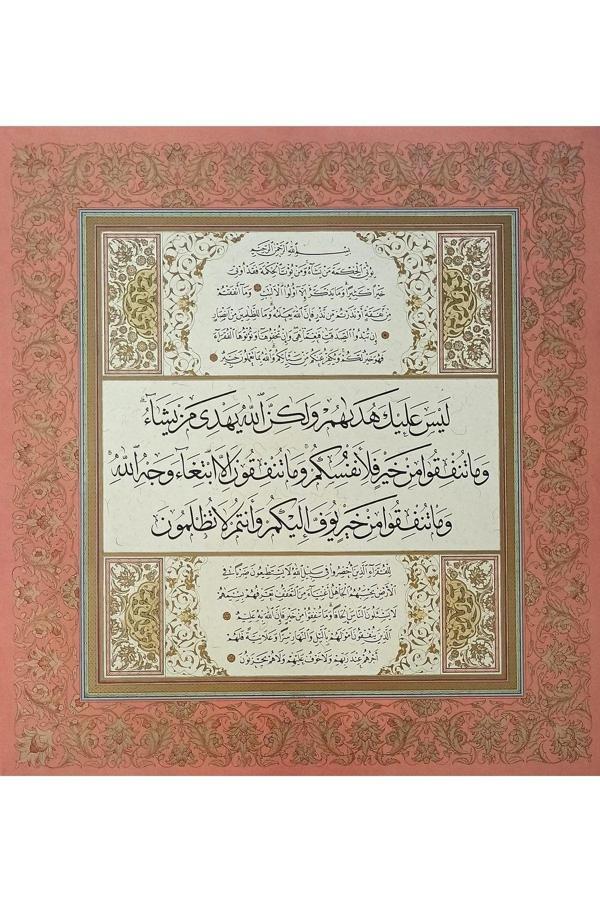 بسم الله الرحمن الرحيم
يؤتي الحكمة من يشاء ومن يؤت الحكمة فقد أوتي
خيرا كثيرا وما يذكر إلا أولوا الألباب وما أنفقتم
من نفقة أو نذرتم من نذر فإن الله يعلمه وما للظالمين من أنصار
إن تبدوا الصدقات فنعما هي وإن تخفوها وتؤتوها الفقراء
فهو خير لكم ويكفر عنكم من سيئاتكم والله بما تعملون خبير
ليس عليك هديهم ولكن الله يهدي من يشاء
وما تنفقوا من خير فلأنفسكم وما تنفقون إلا ابتغاء وجه الله
وما تنفقوا من خير يوف إليكم وأنتم لا تظلمون
للفقراء الذين أحصروا في سبيل الله لا يستطيعون ضربا في
الأرض يحسبهم الجاهل أغنياء من التعفف تعرفهم بسيماهم
لا يسئلون الناس إلحافا وما تنفقوا من خير فإن الله به عليم
الذين ينفقون أموالهم بالليل والنهار سرا وعلانية فلهم
أجرهم عند ربهم ولا خوف عليهم ولا هم يحزنون